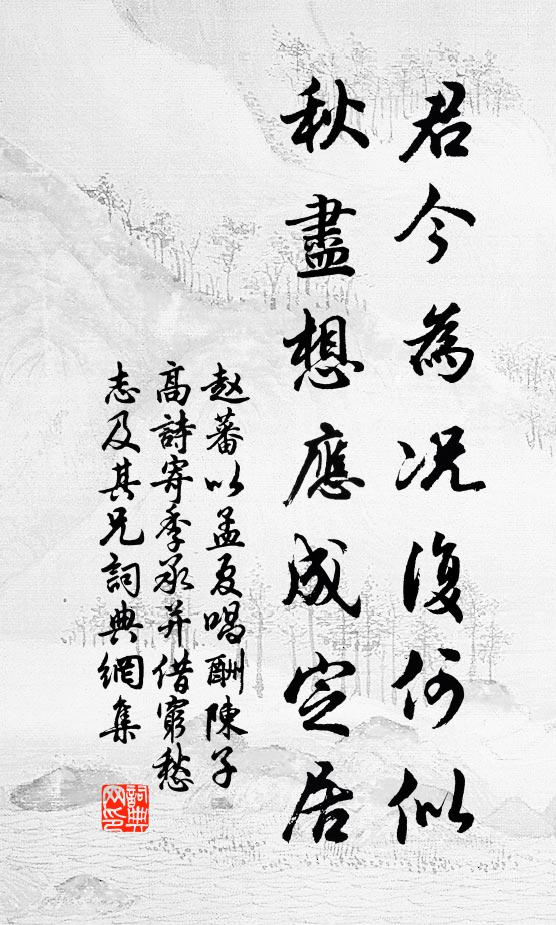 君今為況復何似
秋盡想應成定居
赵蕃以孟夏唱酬陳子
高詩寄季承并借窮愁
志及其兄詞典網集
詞典网印